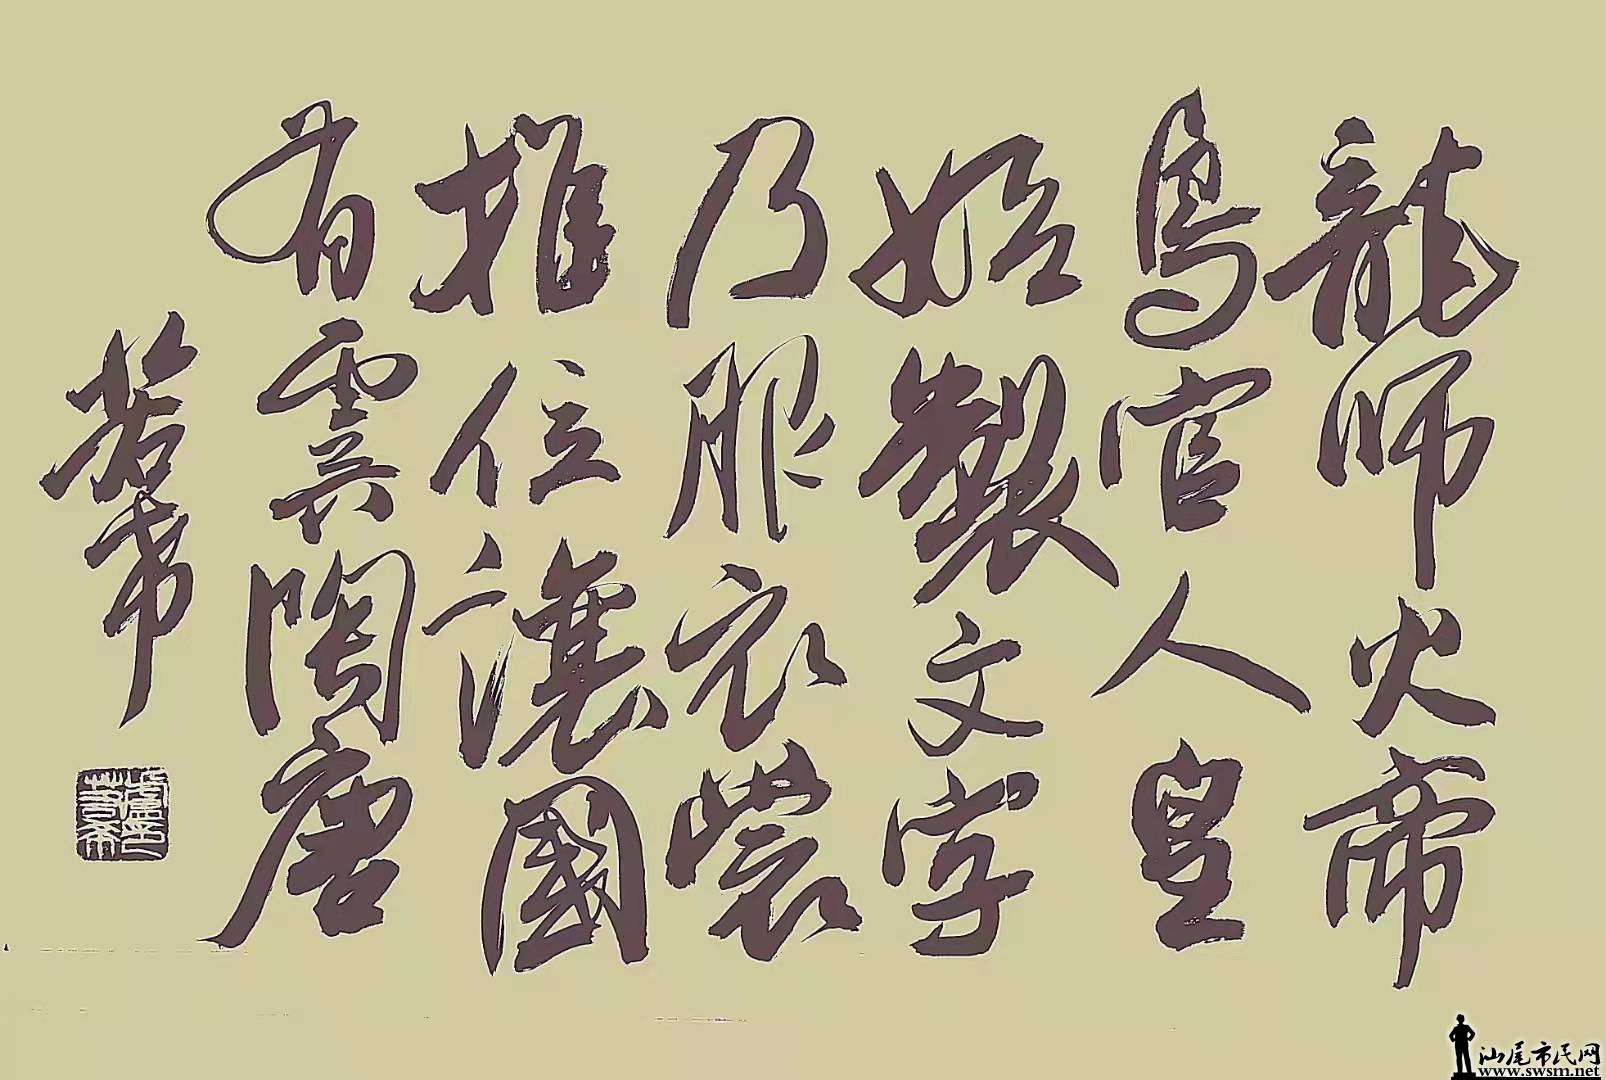 龍师火帝
鳥官人皇
始製文字
乃服衣裳
推位讓國
有虞陶唐
若希
汕尾市民网
www.swsm.net